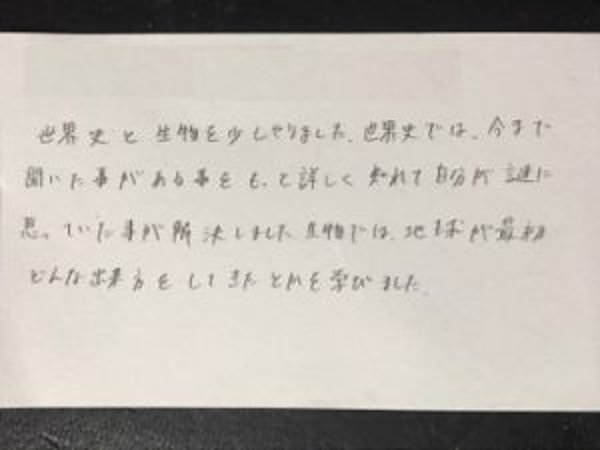 世界史と生物を少しやりました。世界史では、今まで
聞いた事がある事をもっと詳しく知れて自分が謎に
思っていた事が解決しました。生物では、地球が最初
どんな出来方をしてきたとかを学びました。